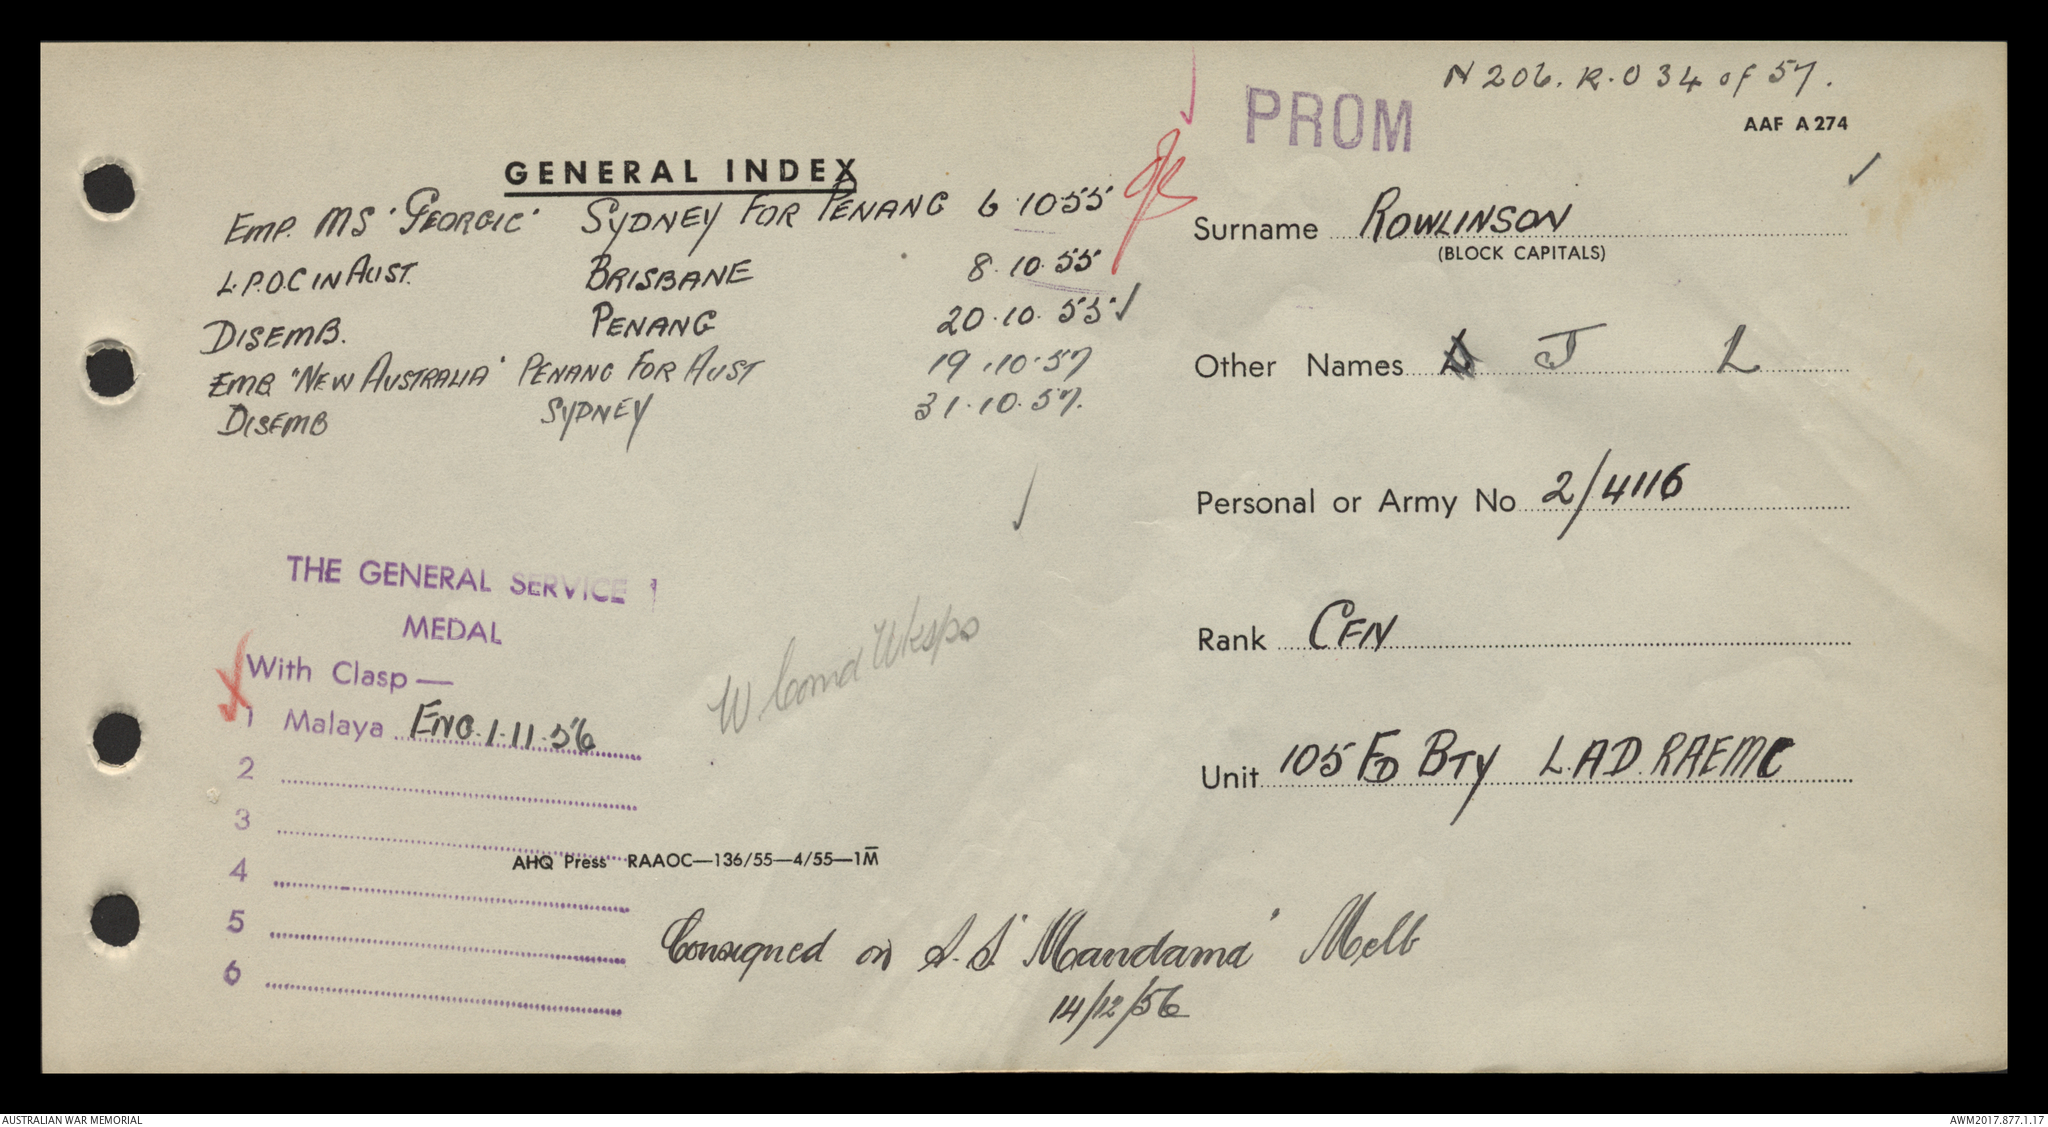 N206. R.O 34 of 57.
PROM
AAF A 274
GENERAL INDEX
EMP. MS 'GEORGIC' SYDNEY FOR PENANG 6.10.55
L.P.O.C IN AUST. BRISBANE 8.10.55
DISEMB. PENANG 20.10.55
EMB "NEW AUSTRALIA" PENANG FOR AUST 19.10.57
DISEMB SYDNEY 31.10.57.
Surname ROWLINSON
(BLOCK CAPITALS)
Other Names J L
Personal or Army No 2/4116
Rank CFN
Unit 105 FD BTY L.A.D. RAEME
THE GENERAL SERVICE
MEDAL
With Clasp—
1 Malaya ENG. 1.11.56
2
3
4
5
6
W. Comd Wksps
AHQ Press RAAOC—136/55—4/55—1M
Consigned on S.S. "Mandama" Melb
14/12/56
AUSTRALIAN WAR MEMORIAL
AWM2017.877.1.17